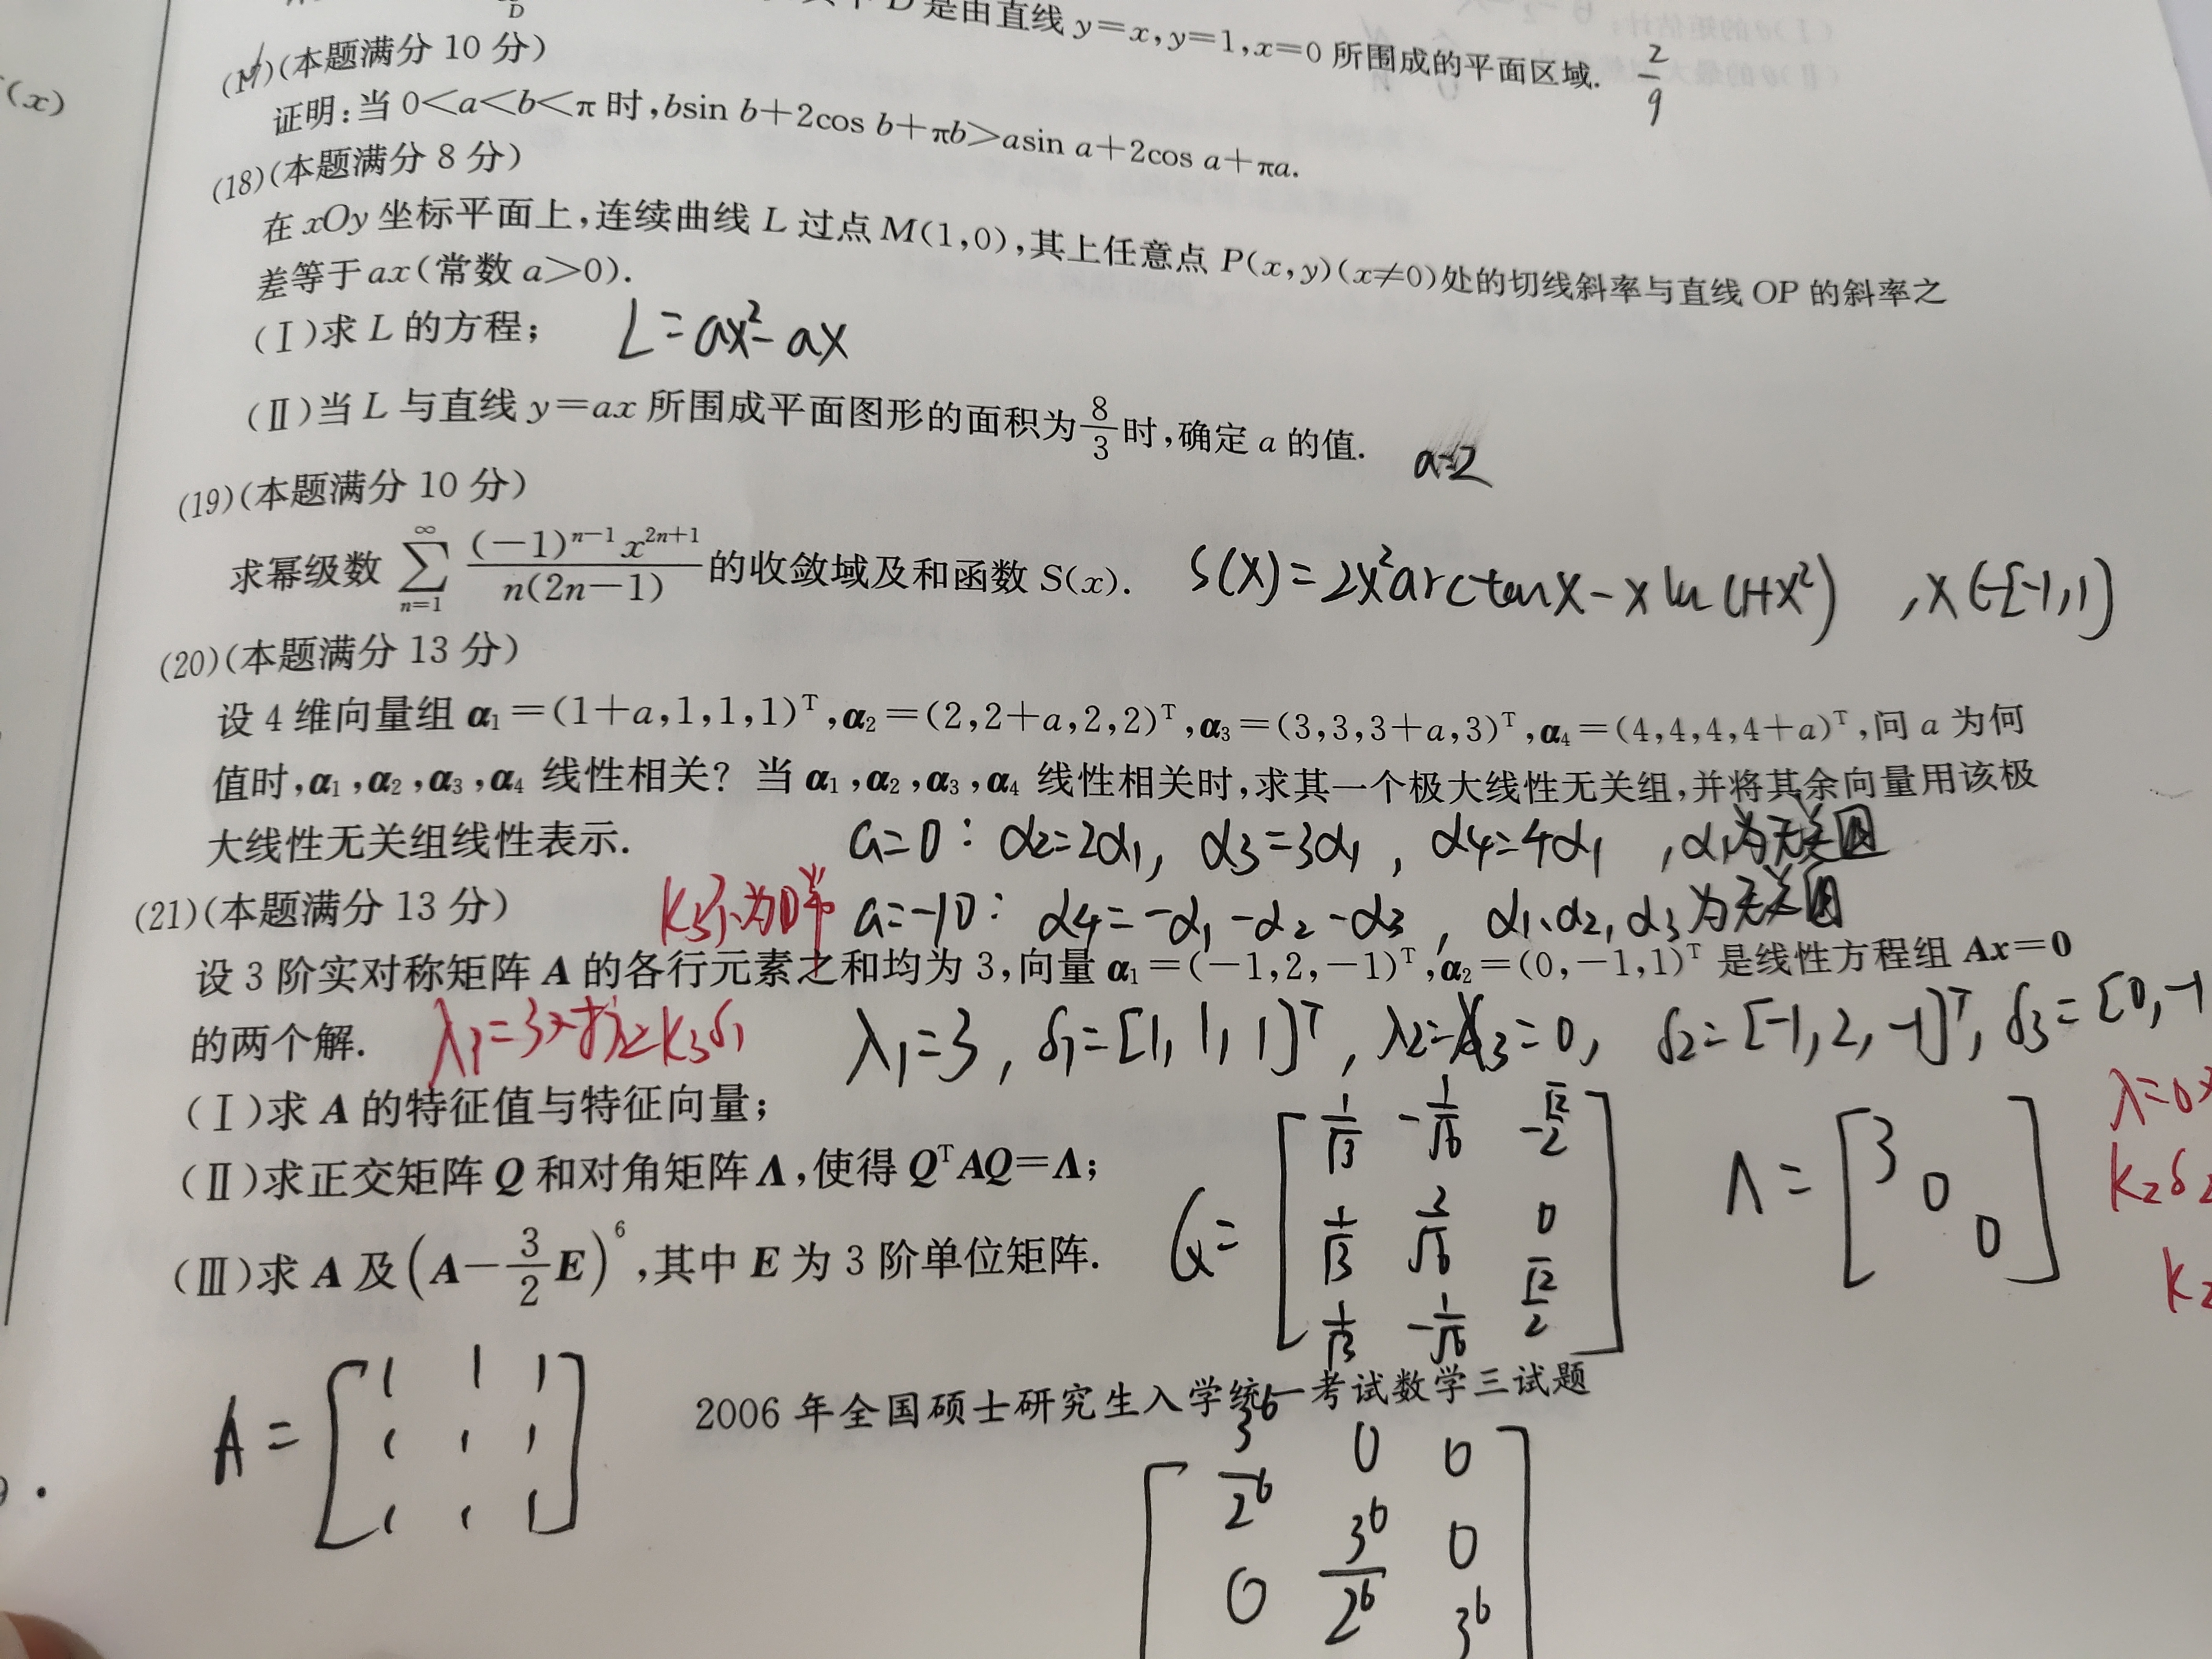 D 是由直线 y=x,y=1,x=0 所围成的平面区域. 2/9
(x)
(17)(本题满分 10 分)
证明:当 0<a<b<π 时,bsin b+2cos b+πb>asin a+2cos a+πa.
(18)(本题满分 8 分)
在 xOy 坐标平面上,连续曲线 L 过点 M(1,0),其上任意点 P(x,y)(x≠0)处的切线斜率与直线 OP 的斜率之
差等于 ax(常数 a>0).
(Ⅰ)求 L 的方程; L=ax²-ax
(Ⅱ)当 L 与直线 y=ax 所围成平面图形的面积为 8/3 时,确定 a 的值. a=2
(19)(本题满分 10 分)
求幂级数 ∑_{n=1}^{∞} (-1)^{n-1}x^{2n+1}/n(2n-1) 的收敛域及和函数 S(x). S(x)=2x²arctanx-xln(1+x²) ,x∈[-1,1]
(20)(本题满分 13 分)
设 4 维向量组 α₁=(1+a,1,1,1)ᵀ,α₂=(2,2+a,2,2)ᵀ,α₃=(3,3,3+a,3)ᵀ,α₄=(4,4,4,4+a)ᵀ,问 a 为何
值时,α₁,α₂,α₃,α₄ 线性相关? 当 α₁,α₂,α₃,α₄ 线性相关时,求其一个极大线性无关组,并将其余向量用该极
大线性无关组线性表示. a=0: α2=2α1, α3=3α1, α4=4α1 ,α1为无关组
(21)(本题满分 13 分) a=-10: α4=-α1-α2-α3, α1、α2,α3为无关组
设 3 阶实对称矩阵 A 的各行元素之和均为 3,向量 α₁=(-1,2,-1)ᵀ,α₂=(0,-1,1)ᵀ 是线性方程组 Ax=0
的两个解. λ1=3, δ1=[1,1,1]ᵀ, λ2=λ3=0, δ2=[-1,2,-1]ᵀ, δ3=[0,-1
(Ⅰ)求 A 的特征值与特征向量;
λ=0
(Ⅱ)求正交矩阵 Q 和对角矩阵 Λ,使得 QᵀAQ=Λ;
k2δ2
(Ⅲ)求 A 及 (A-3/2 E)⁶,其中 E 为 3 阶单位矩阵.
k2
Q= [1/√3 -1/√6 -√2/2
1/√3 2/√6 0
1/√3 -1/√6 √2/2]
Λ= [3
0
0]
A= [1 1 1
1 1 1
1 1 1]
2006 年全国硕士研究生入学统一考试数学三试题
[3⁶/2⁶ 0 0
0 3⁶/2⁶ 0
3⁶
9 ·